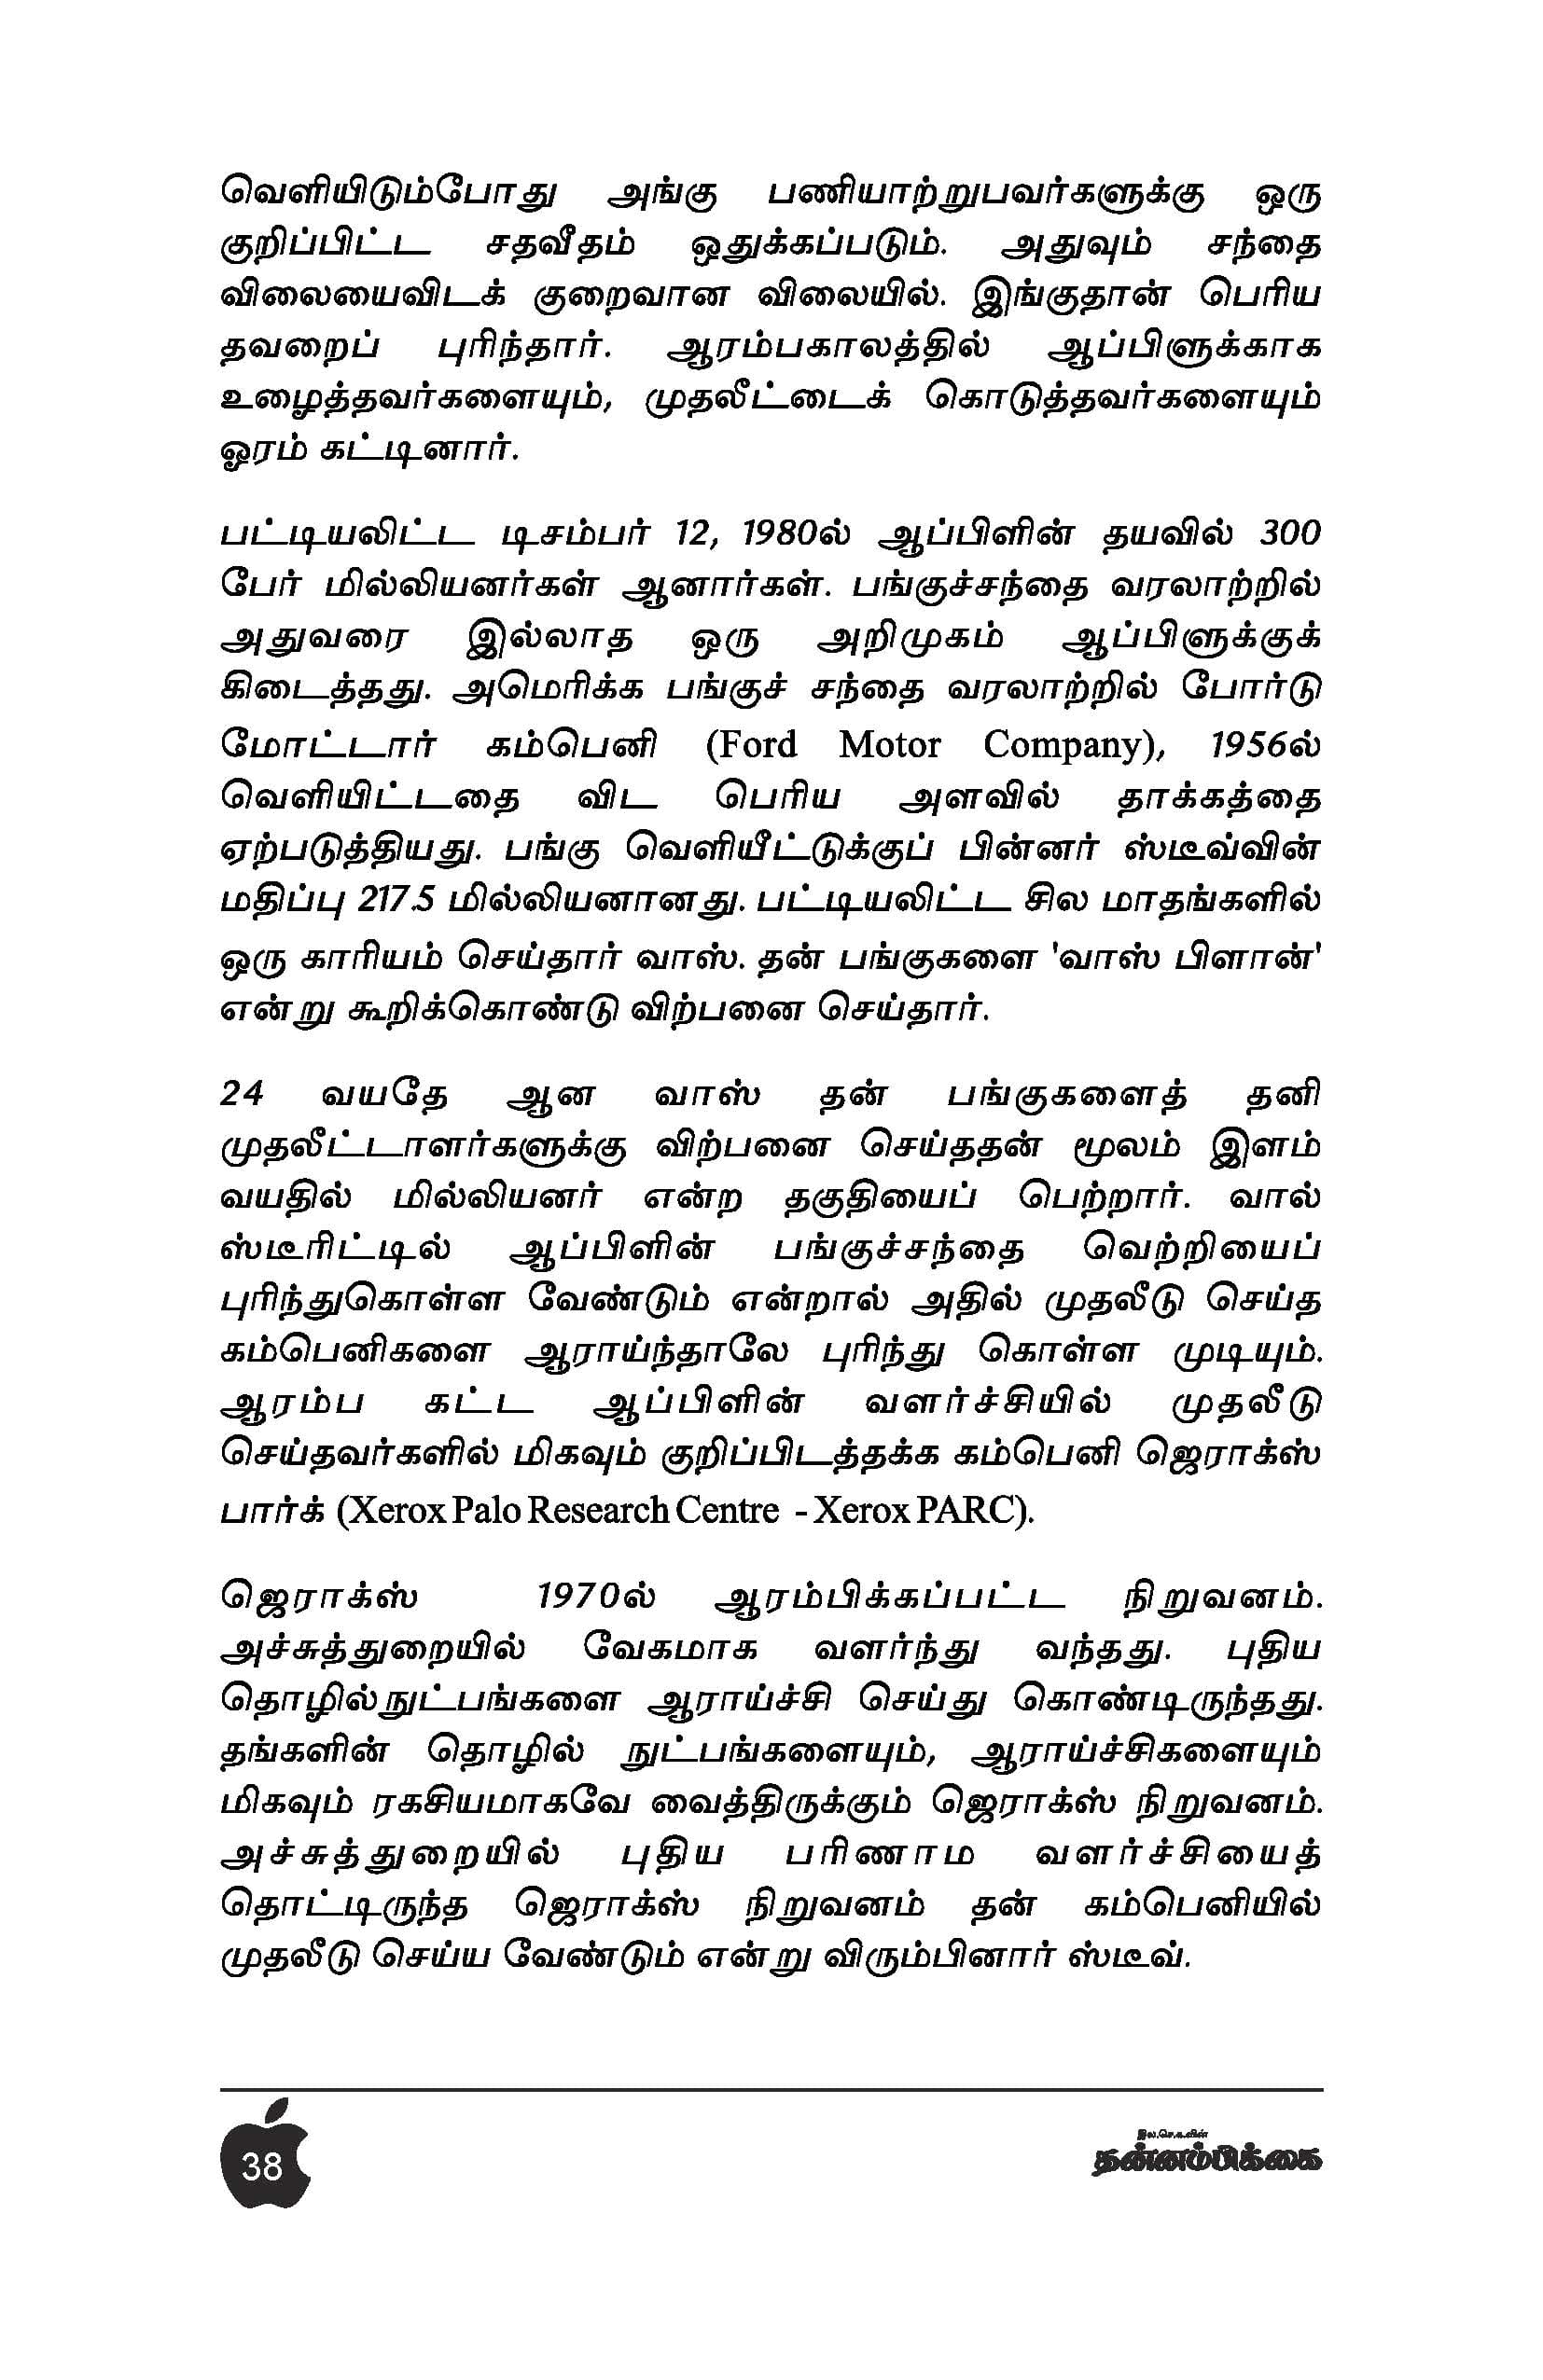 வெளியிடும்போது அங்கு பணியாற்றுபவர்களுக்கு ஒரு
குறிப்பிட்ட சதவீதம் ஒதுக்கப்படும். அதுவும் சந்தை
விலையைவிடக் குறைவான விலையில். இங்குதான் பெரிய
தவறைப் புரிந்தார். ஆரம்பகாலத்தில் ஆப்பிளுக்காக
உழைத்தவர்களையும், முதலீட்டைக் கொடுத்தவர்களையும்
ஓரம் கட்டினார்.
பட்டியலிட்ட டிசம்பர் 12, 1980ல் ஆப்பிளின் தயவில் 300
பேர் மில்லியனர்கள் ஆனார்கள். பங்குச்சந்தை வரலாற்றில்
அதுவரை இல்லாத ஒரு அறிமுகம் ஆப்பிளுக்குக்
கிடைத்தது. அமெரிக்க பங்குச் சந்தை வரலாற்றில் போர்டு
மோட்டார் கம்பெனி (Ford Motor Company), 1956ல்
வெளியிட்டதை விட பெரிய அளவில் தாக்கத்தை
ஏற்படுத்தியது. பங்கு வெளியீட்டுக்குப் பின்னர் ஸ்டீவ்வின்
மதிப்பு 217.5 மில்லியனானது. பட்டியலிட்ட சில மாதங்களில்
ஒரு காரியம் செய்தார் வாஸ். தன் பங்குகளை 'வாஸ் பிளான்'
என்று கூறிக்கொண்டு விற்பனை செய்தார்.
24 வயதே ஆன வாஸ் தன் பங்குகளைத் தனி
முதலீட்டாளர்களுக்கு விற்பனை செய்ததன் மூலம் இளம்
வயதில் மில்லியனர் என்ற தகுதியைப் பெற்றார். வால்
ஸ்டீரிட்டில் ஆப்பிளின் பங்குச்சந்தை வெற்றியைப்
புரிந்துகொள்ள வேண்டும் என்றால் அதில் முதலீடு செய்த
கம்பெனிகளை ஆராய்ந்தாலே புரிந்து கொள்ள முடியும்.
ஆரம்ப கட்ட ஆப்பிளின் வளர்ச்சியில் முதலீடு
செய்தவர்களில் மிகவும் குறிப்பிடத்தக்க கம்பெனி ஜெராக்ஸ்
பார்க் (Xerox Palo Research Centre - Xerox PARC).
ஜெராக்ஸ் 1970ல் ஆரம்பிக்கப்பட்ட நிறுவனம்.
அச்சுத்துறையில் வேகமாக வளர்ந்து வந்தது. புதிய
தொழில்நுட்பங்களை ஆராய்ச்சி செய்து கொண்டிருந்தது.
தங்களின் தொழில் நுட்பங்களையும், ஆராய்ச்சிகளையும்
மிகவும் ரகசியமாகவே வைத்திருக்கும் ஜெராக்ஸ் நிறுவனம்.
அச்சுத்துறையில் புதிய பரிணாம வளர்ச்சியைத்
தொட்டிருந்த ஜெராக்ஸ் நிறுவனம் தன் கம்பெனியில்
முதலீடு செய்ய வேண்டும் என்று விரும்பினார் ஸ்டீவ்.
38
இல.செ.க.வின்
தன்னம்பிக்கை